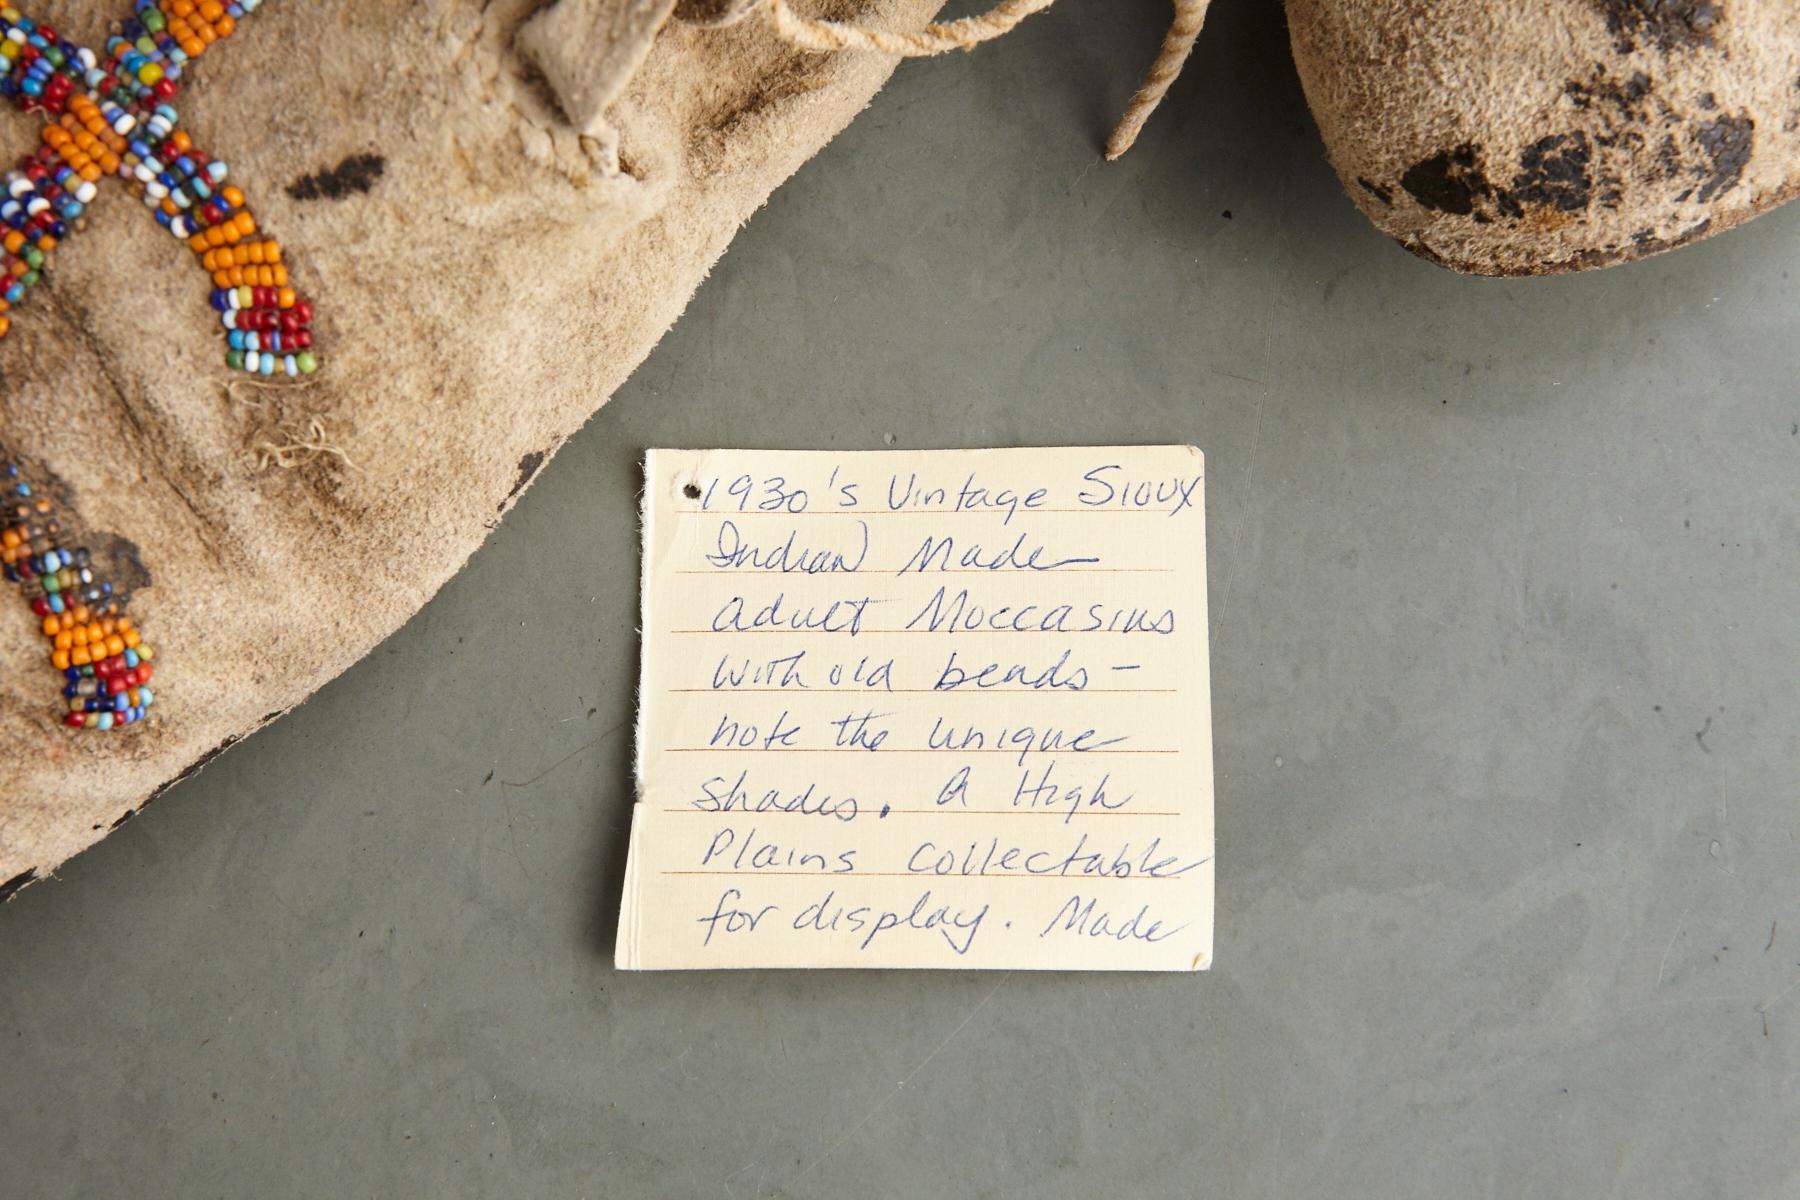 1930's Vintage Sioux
Indian Made
adult Moccasins
with old beads -
note the unique
shades. A High
Plains collectable
for display. Made